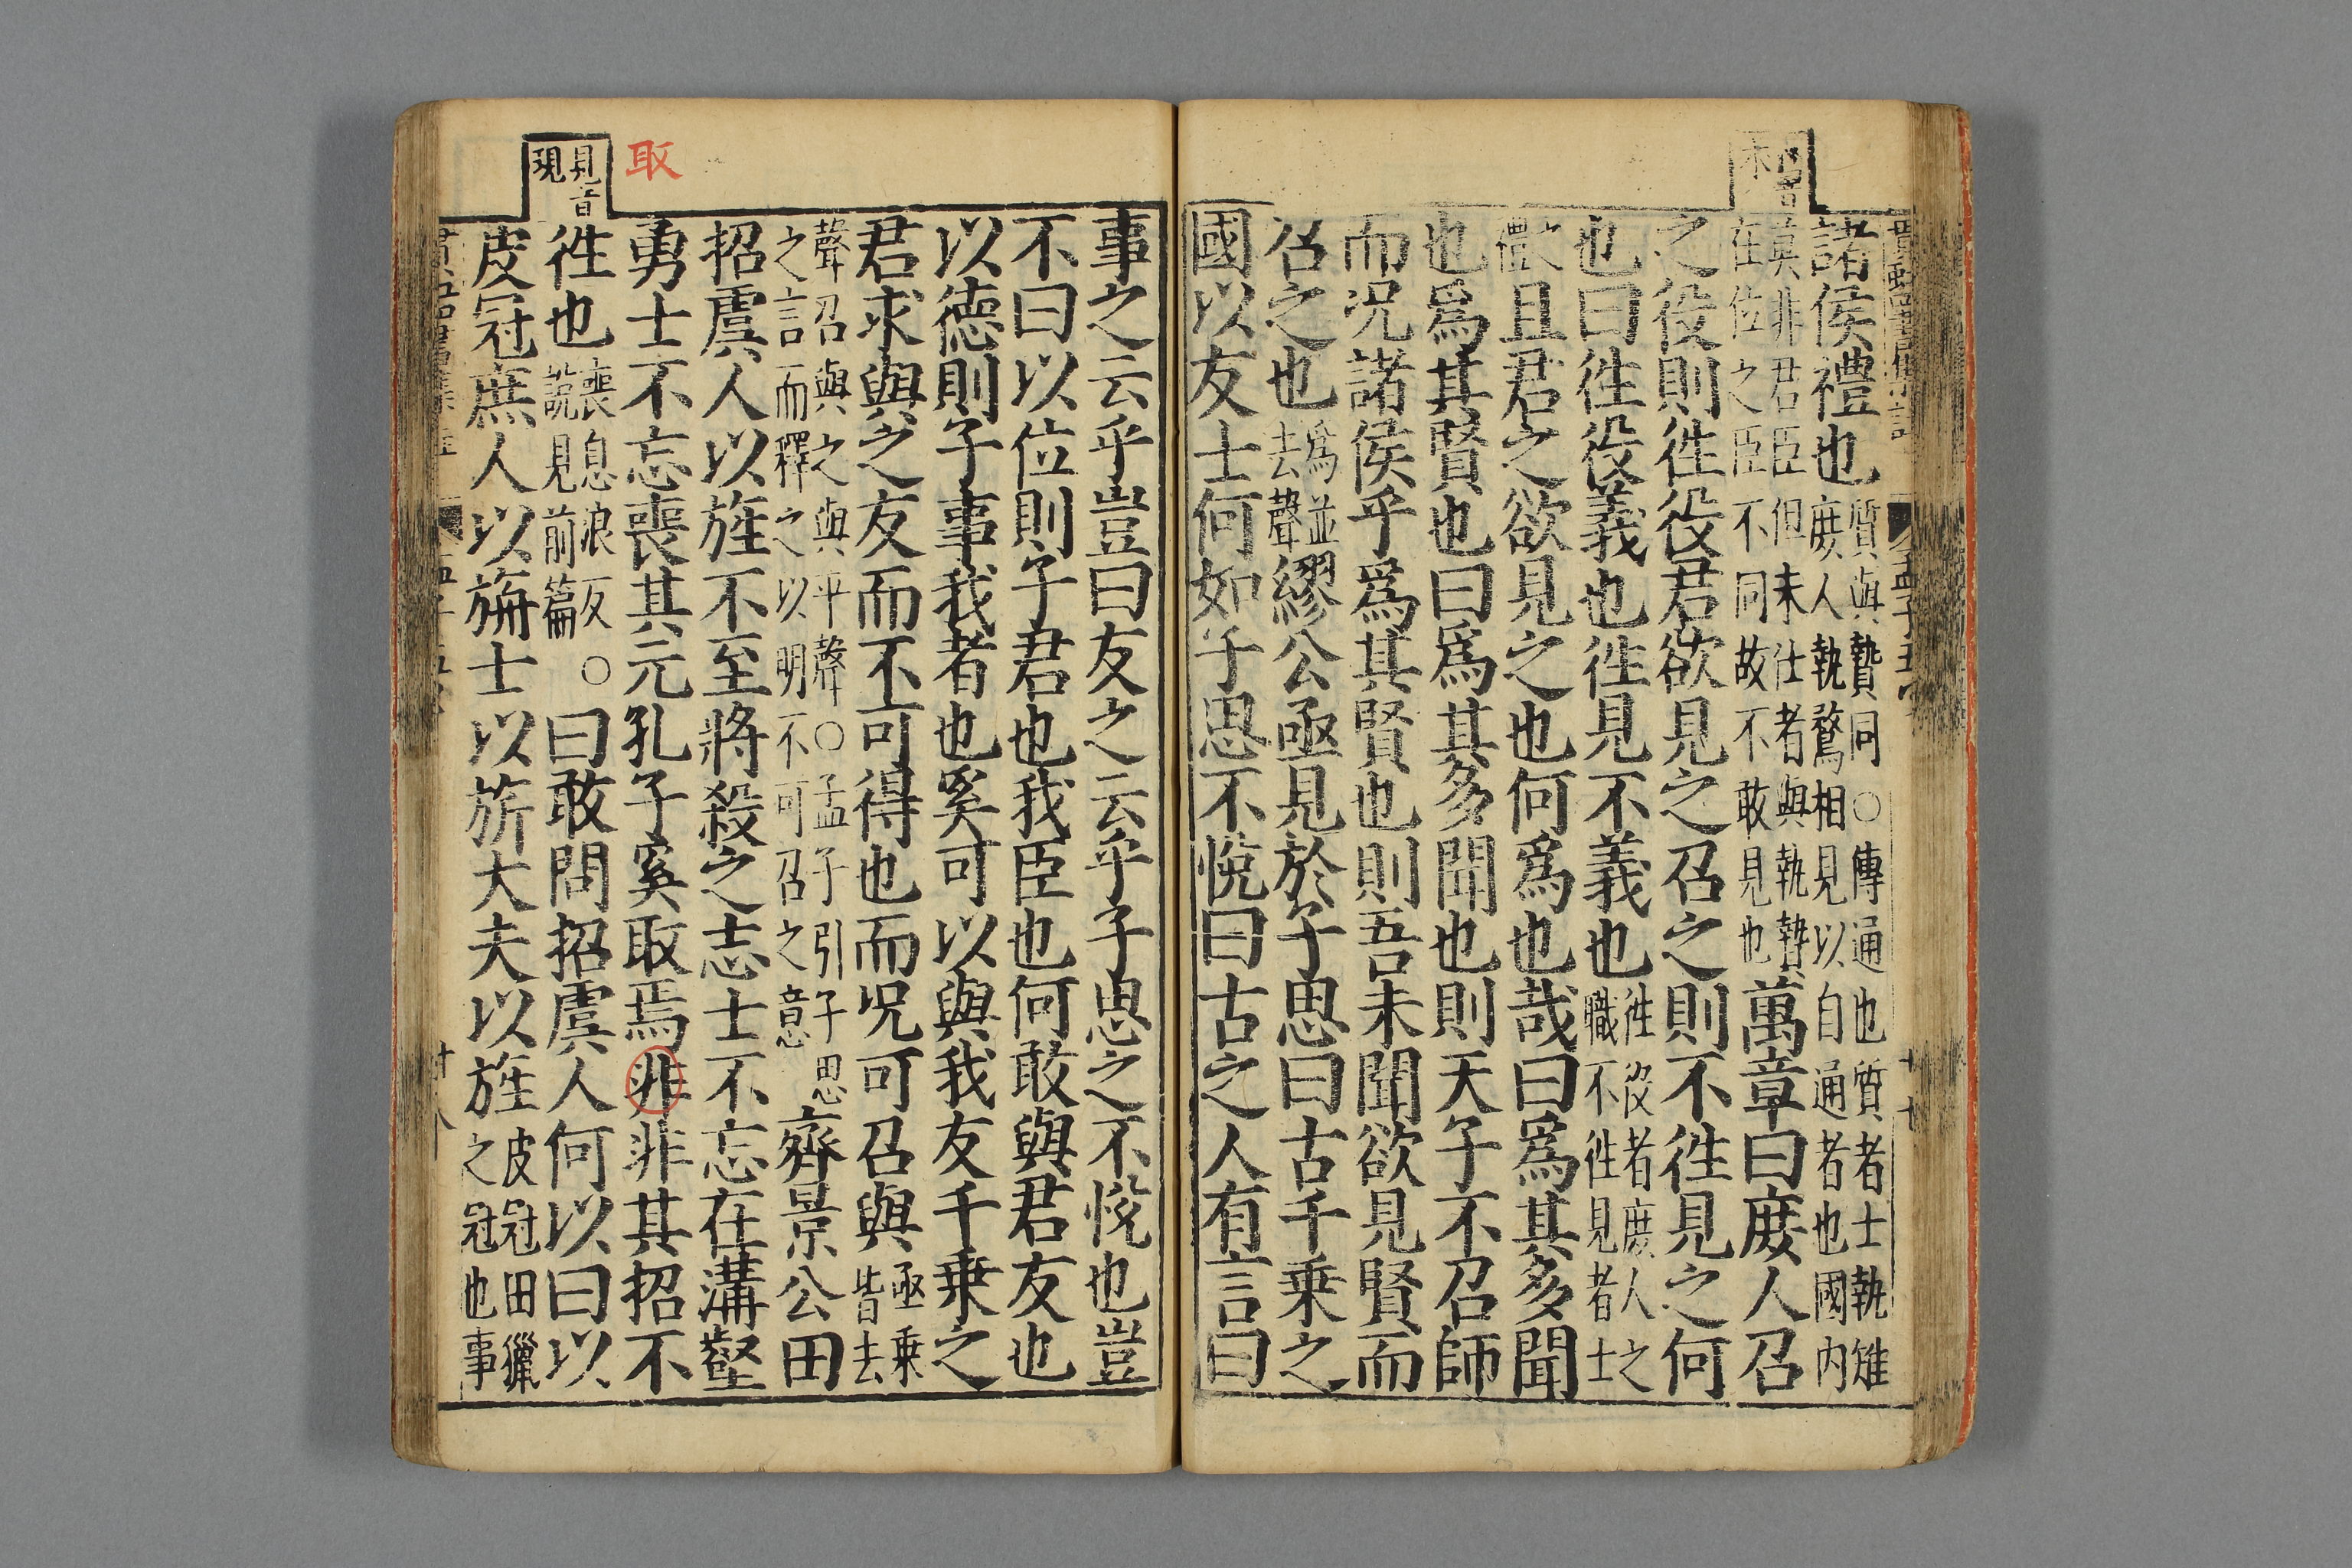 諸侯禮也質與贄同○傳通也質者士執雉庶人執鶩相見以自通者也國内
莫非君臣但未仕者與執贄在位之臣不同故不敢見也萬章曰庶人召
之役則徃役君欲見之召之則不徃見之何
也曰徃役義也徃見不義也徃役者庶人之職不徃見者士
之禮且君之欲見之也何爲也哉曰爲其多聞
也爲其賢也曰爲其多聞也則天子不召師
而况諸侯乎爲其賢也則吾未聞欲見賢而
召之也爲並去聲繆公亟見於子思曰古千乗之
國以友士何如子思不悅曰古之人有言曰
事之云乎豈曰友之云乎子思之不悅也豈
不曰以位則子君也我臣也何敢與君友也
以德則子事我者也奚可以與我友千乗之
君求與之友而不可得也而况可召與亟乗皆去
聲召與之與平聲○孟子引子思之言而釋之以明不可召之意齊景公田
招虞人以旌不至將殺之志士不忘在溝壑
勇士不忘喪其元孔子奚取焉非非其招不
取
徃也喪息浪反説見前篇○曰敢問招虞人何以曰以
見音現
皮冠庶人以旃士以旂大夫以旌皮冠田獵之冠也事